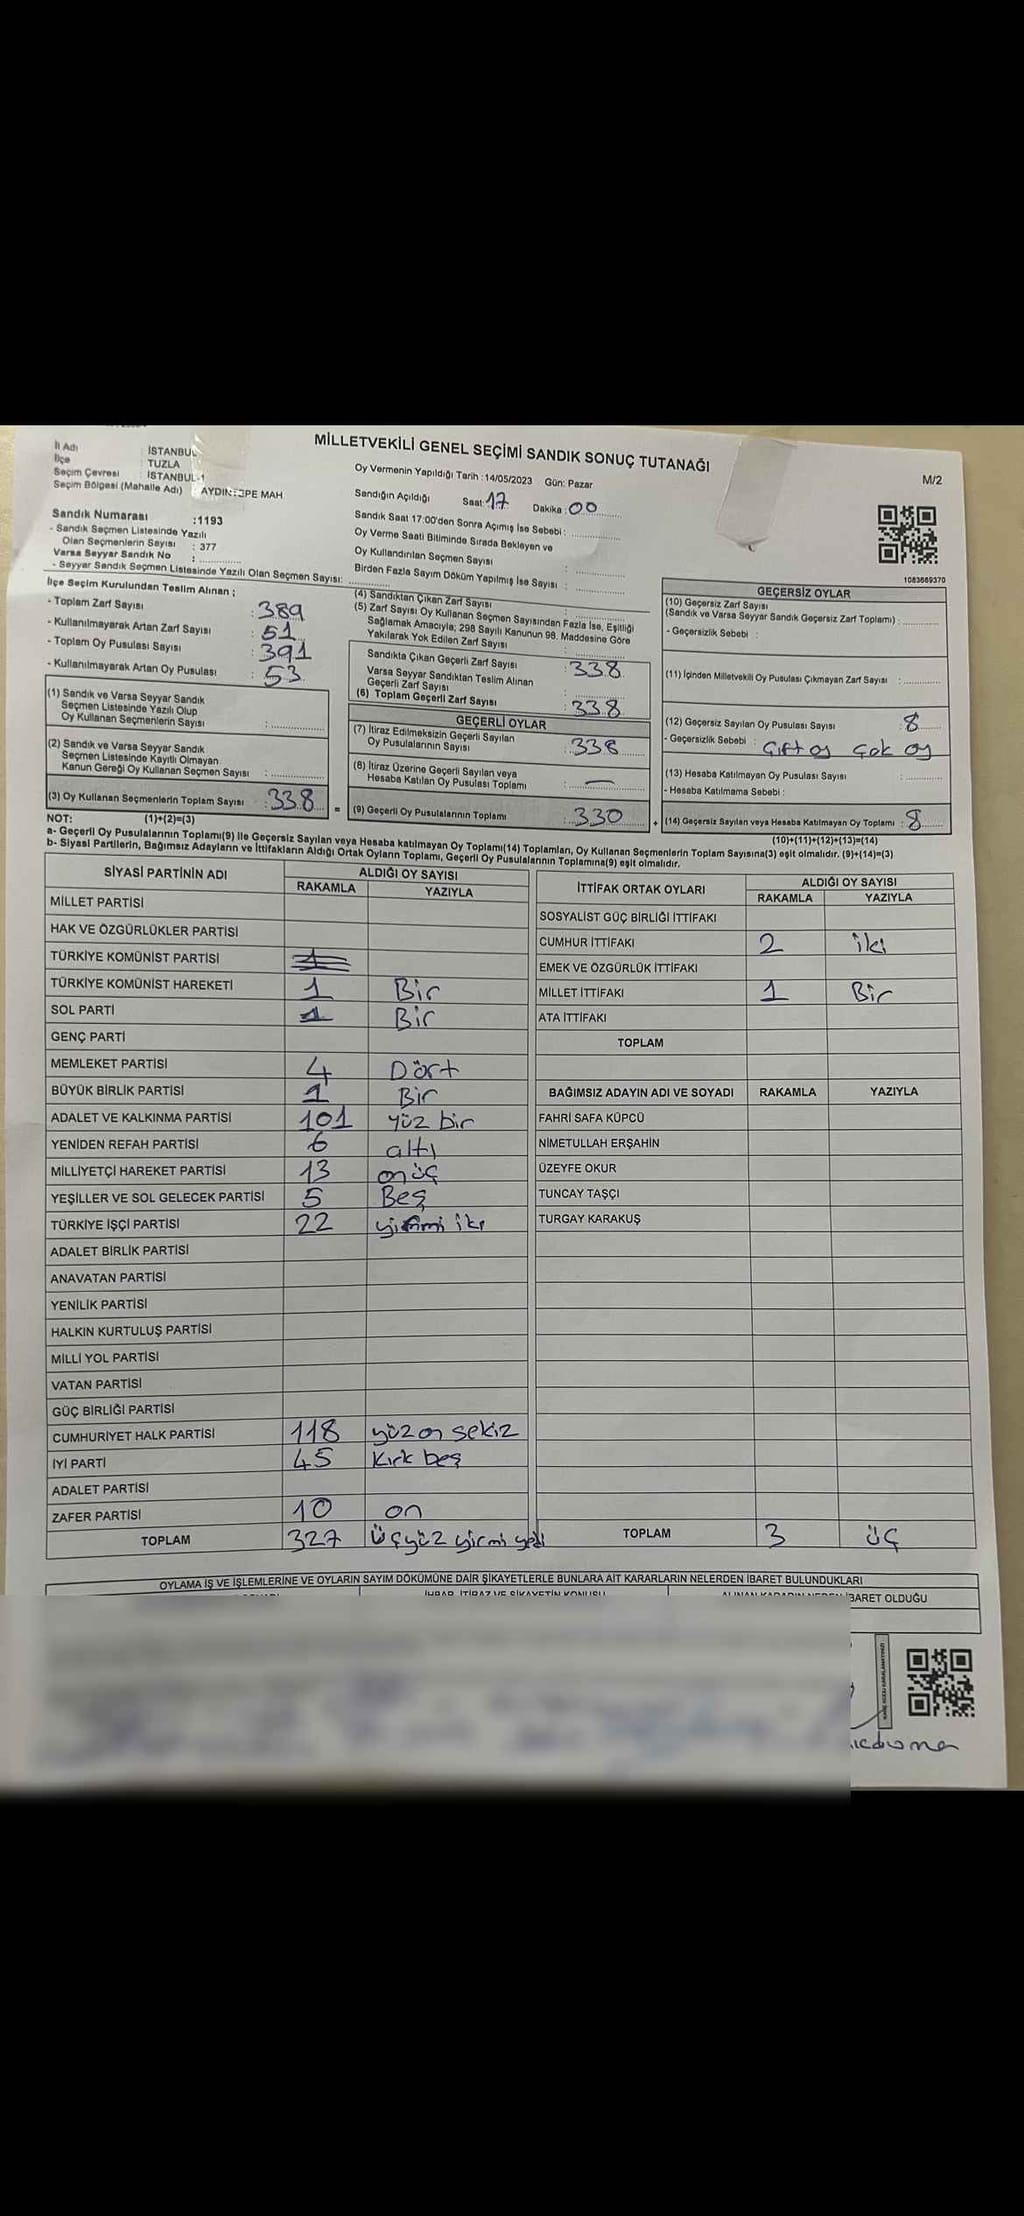 MİLLETVEKİLİ GENEL SEÇİMİ SANDIK SONUÇ TUTANAĞI
M/2
İl Adı : İSTANBUL
İlçe : TUZLA
Seçim Çevresi : İSTANBUL-1
Seçim Bölgesi (Mahalle Adı) AYDINTEPE MAH
Sandık Numarası :1193
- Sandık Seçmen Listesinde Yazılı
Olan Seçmenlerin Sayısı : 377
Varsa Seyyar Sandık No :
- Seyyar Sandık Seçmen Listesinde Yazılı Olan Seçmen Sayısı:
Oy Vermenin Yapıldığı Tarih : 14/05/2023 Gün: Pazar
Sandığın Açıldığı Saat: 17 Dakika : 00
Sandık Saat 17:00'den Sonra Açımış İse Sebebi :
Oy Verme Saati Bitiminde Sırada Bekleyen ve
Oy Kullandırılan Seçmen Sayısı :
Birden Fazla Sayım Döküm Yapılmış İse Sayısı :
1083669370
İlçe Seçim Kurulundan Teslim Alınan ;
- Toplam Zarf Sayısı : 389
- Kullanılmayarak Artan Zarf Sayısı : 51
- Toplam Oy Pusulası Sayısı : 391
- Kullanılmayarak Artan Oy Pusulası : 53
(1) Sandık ve Varsa Seyyar Sandık
Seçmen Listesinde Yazılı Olup
Oy Kullanan Seçmenlerin Sayısı :
(2) Sandık ve Varsa Seyyar Sandık
Seçmen Listesinde Kayıtlı Olmayan
Kanun Gereği Oy Kullanan Seçmen Sayısı :
(3) Oy Kullanan Seçmenlerin Toplam Sayısı : 338 =
(4) Sandıktan Çıkan Zarf Sayısı :
(5) Zarf Sayısı Oy Kullanan Seçmen Sayısından Fazla İse, Eşitliği
Sağlamak Amacıyla; 298 Sayılı Kanunun 98. Maddesine Göre
Yakılarak Yok Edilen Zarf Sayısı :
Sandıkta Çıkan Geçerli Zarf Sayısı : 338
Varsa Seyyar Sandıktan Teslim Alınan
Geçerli Zarf Sayısı :
(6) Toplam Geçerli Zarf Sayısı : 338
GEÇERLİ OYLAR
(7) İtiraz Edilmeksizin Geçerli Sayılan
Oy Pusulalarının Sayısı : 338
(8) İtiraz Üzerine Geçerli Sayılan veya
Hesaba Katılan Oy Pusulası Toplamı : —
(9) Geçerli Oy Pusulalarının Toplamı : 330 +
GEÇERSİZ OYLAR
(10) Geçersiz Zarf Sayısı
(Sandık ve Varsa Seyyar Sandık Geçersiz Zarf Toplamı) :
- Geçersizlik Sebebi :
(11) İçinden Milletvekili Oy Pusulası Çıkmayan Zarf Sayısı :
(12) Geçersiz Sayılan Oy Pusulası Sayısı : 8
- Geçersizlik Sebebi : Çift oy Çok oy
(13) Hesaba Katılmayan Oy Pusulası Sayısı :
- Hesaba Katılmama Sebebi :
(14) Geçersiz Sayılan veya Hesaba Katılmayan Oy Toplamı : 8
NOT: (1)+(2)=(3) (10)+(11)+(12)+(13)=(14)
a- Geçerli Oy Pusulalarının Toplamı(9) ile Geçersiz Sayılan veya Hesaba katılmayan Oy Toplamı(14) Toplamları, Oy Kullanan Seçmenlerin Toplam Sayısına(3) eşit olmalıdır. (9)+(14)=(3)
b- Siyasi Partilerin, Bağımsız Adayların ve İttifakların Aldığı Ortak Oyların Toplamı, Geçerli Oy Pusulalarının Toplamına(9) eşit olmalıdır.
SİYASİ PARTİNİN ADI ALDIĞI OY SAYISI
RAKAMLA YAZIYLA
MİLLET PARTİSİ
HAK VE ÖZGÜRLÜKLER PARTİSİ
TÜRKİYE KOMÜNİST PARTİSİ 1
TÜRKİYE KOMÜNİST HAREKETİ 1 Bir
SOL PARTİ 1 Bir
GENÇ PARTİ
MEMLEKET PARTİSİ 4 Dört
BÜYÜK BİRLİK PARTİSİ 1 Bir
ADALET VE KALKINMA PARTİSİ 101 yüz bir
YENİDEN REFAH PARTİSİ 6 altı
MİLLİYETÇİ HAREKET PARTİSİ 13 onüç
YEŞİLLER VE SOL GELECEK PARTİSİ 5 Beş
TÜRKİYE İŞÇİ PARTİSİ 22 yirmi iki
ADALET BİRLİK PARTİSİ
ANAVATAN PARTİSİ
YENİLİK PARTİSİ
HALKIN KURTULUŞ PARTİSİ
MİLLİ YOL PARTİSİ
VATAN PARTİSİ
GÜÇ BİRLİĞİ PARTİSİ
CUMHURİYET HALK PARTİSİ 118 yüz on sekiz
İYİ PARTİ 45 Kırk beş
ADALET PARTİSİ
ZAFER PARTİSİ 10 on
TOPLAM 327 Üçyüz yirmi yedi
İTTİFAK ORTAK OYLARI ALDIĞI OY SAYISI
RAKAMLA YAZIYLA
SOSYALİST GÜÇ BİRLİĞİ İTTİFAKI
CUMHUR İTTİFAKI 2 iki
EMEK VE ÖZGÜRLÜK İTTİFAKI
MİLLET İTTİFAKI 1 Bir
ATA İTTİFAKI
TOPLAM
BAĞIMSIZ ADAYIN ADI VE SOYADI RAKAMLA YAZIYLA
FAHRİ SAFA KÜPCÜ
NİMETULLAH ERŞAHİN
ÜZEYFE OKUR
TUNCAY TAŞÇI
TURGAY KARAKUŞ
TOPLAM 3 üç
OYLAMA İŞ VE İŞLEMLERİNE VE OYLARIN SAYIM DÖKÜMÜNE DAİR ŞİKAYETLERLE BUNLARA AİT KARARLARIN NELERDEN İBARET BULUNDUKLARI
İHBAR, İTİRAZ VE ŞİKAYETİN KONUSU ALINAN KARARIN NEDEN İBARET OLDUĞU